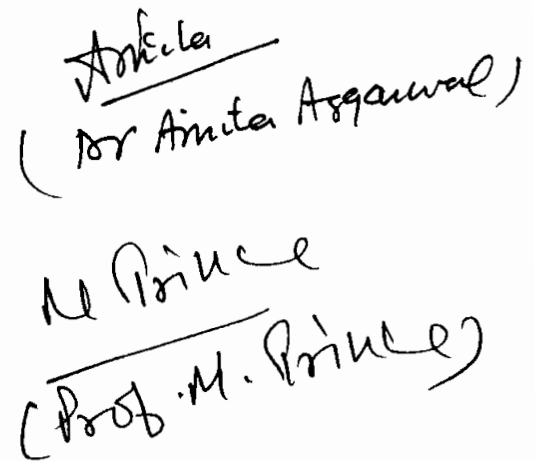 Amita
(Dr Amita Aggarwal)
M Prince
(Prof. M. Prince)